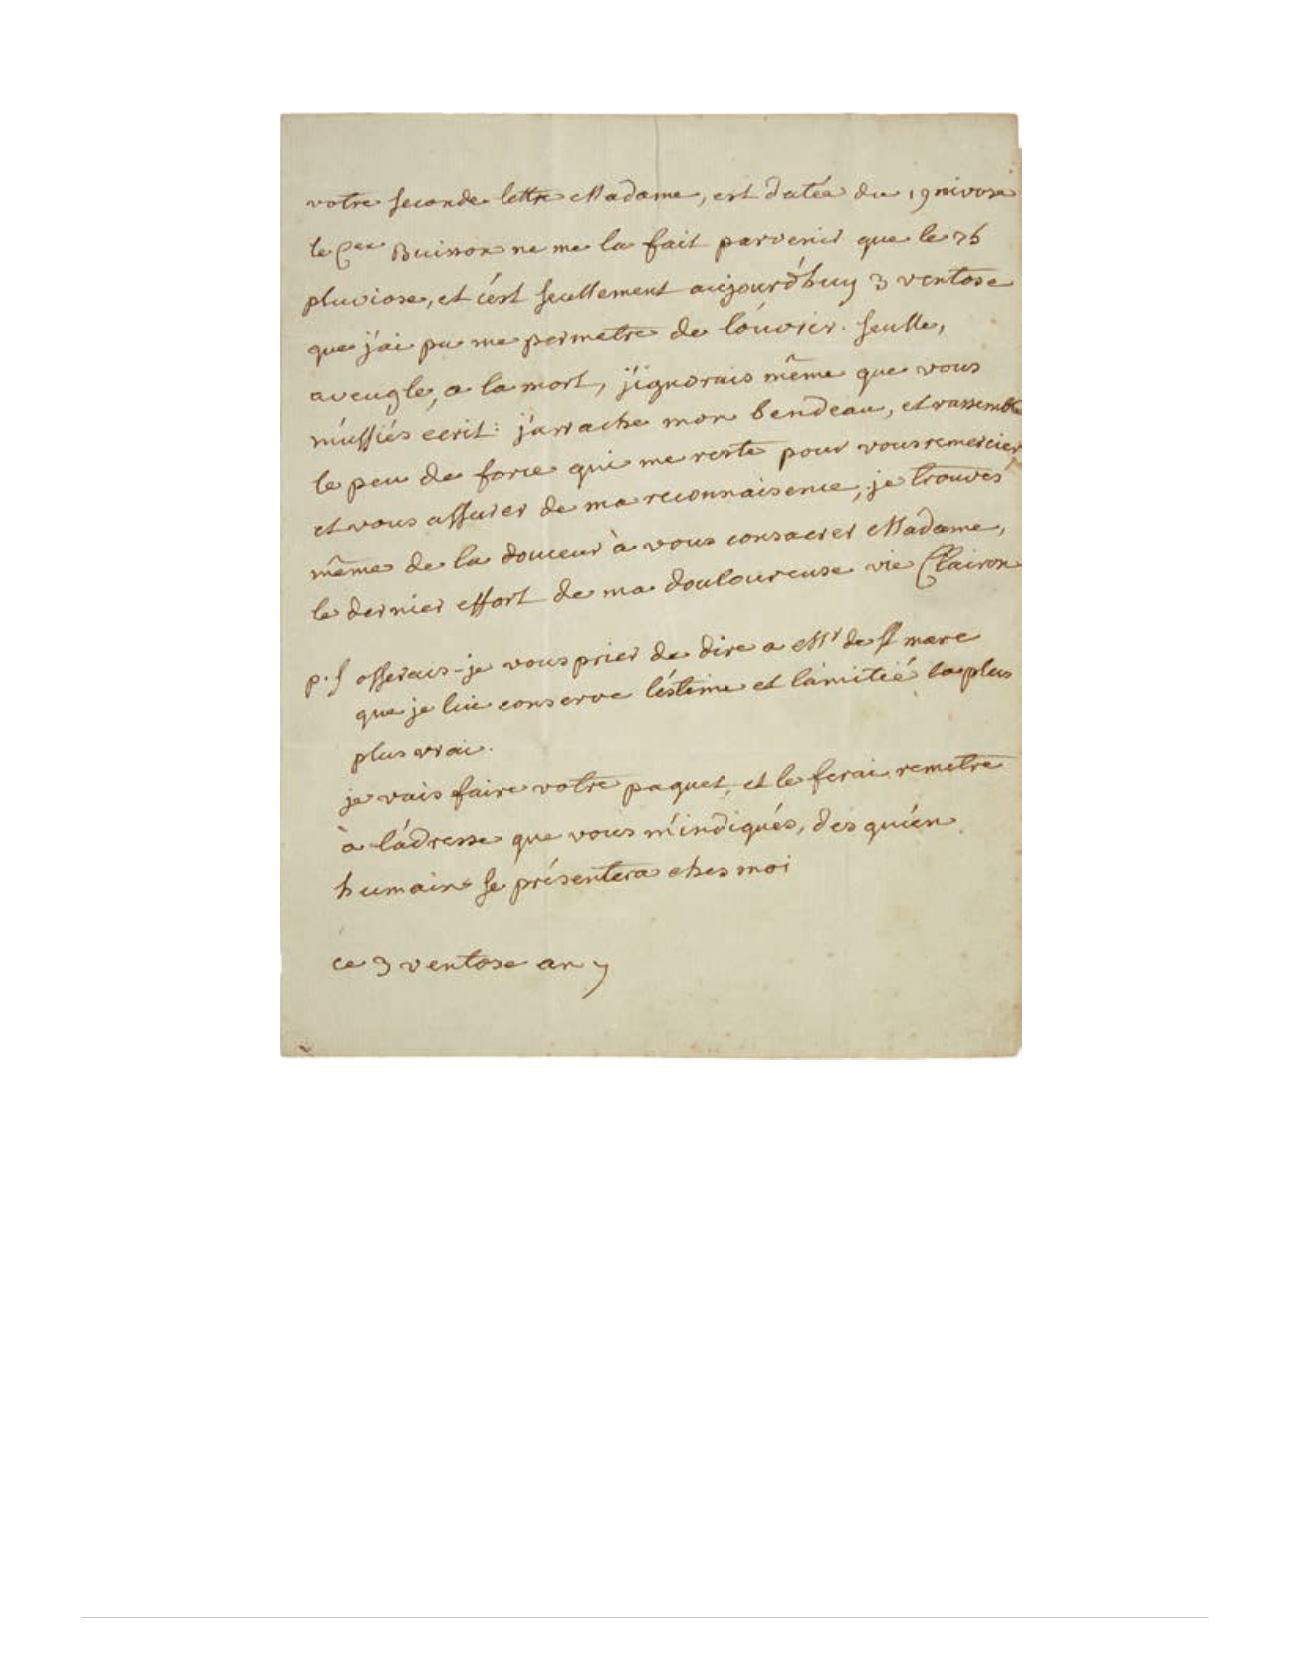 votre seconde lettre Madame, est datée du 19 nivose
le Cen Buisson ne me la fait parvenir que le 26
pluviose, et c'ést seullement aujourd'huy 3 ventose
que j'ai pu me permetre de l'ouvrir. seulle,
aveugle, a la mort, j'ignorais même que vous
m'ussiés ecrit: j'arrache mon bendeau, et rassemble
le peu de force qui me reste pour vous remercier
et vous assurer de ma reconnaisence, je trouves
même de la douceur à vous consacrer Madame,
le dernier effort de ma douloureuse vie Clairon
p.s osserais-je vous prier de dire a Mr de St marc
que je lui conserve l'éstime et l'amitié la plus
plus vrai.
je vais faire votre paquet, et le ferai remetre
à l'adresse que vous m'indiqués, des qu'un
humain se présentera ches moi
ce 3 ventose an 7